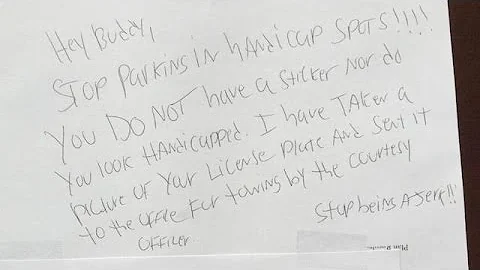 Hey Buddy,
STOP Parking in handicap SPOTS!!!!
You DO NOT have a Sticker Nor do
You look HANdicapped. I have TAKen a
picture OF Your License Plate And Sent it
to the office For towing by the courtesy
OFFicer
Stop being A Jerk!!